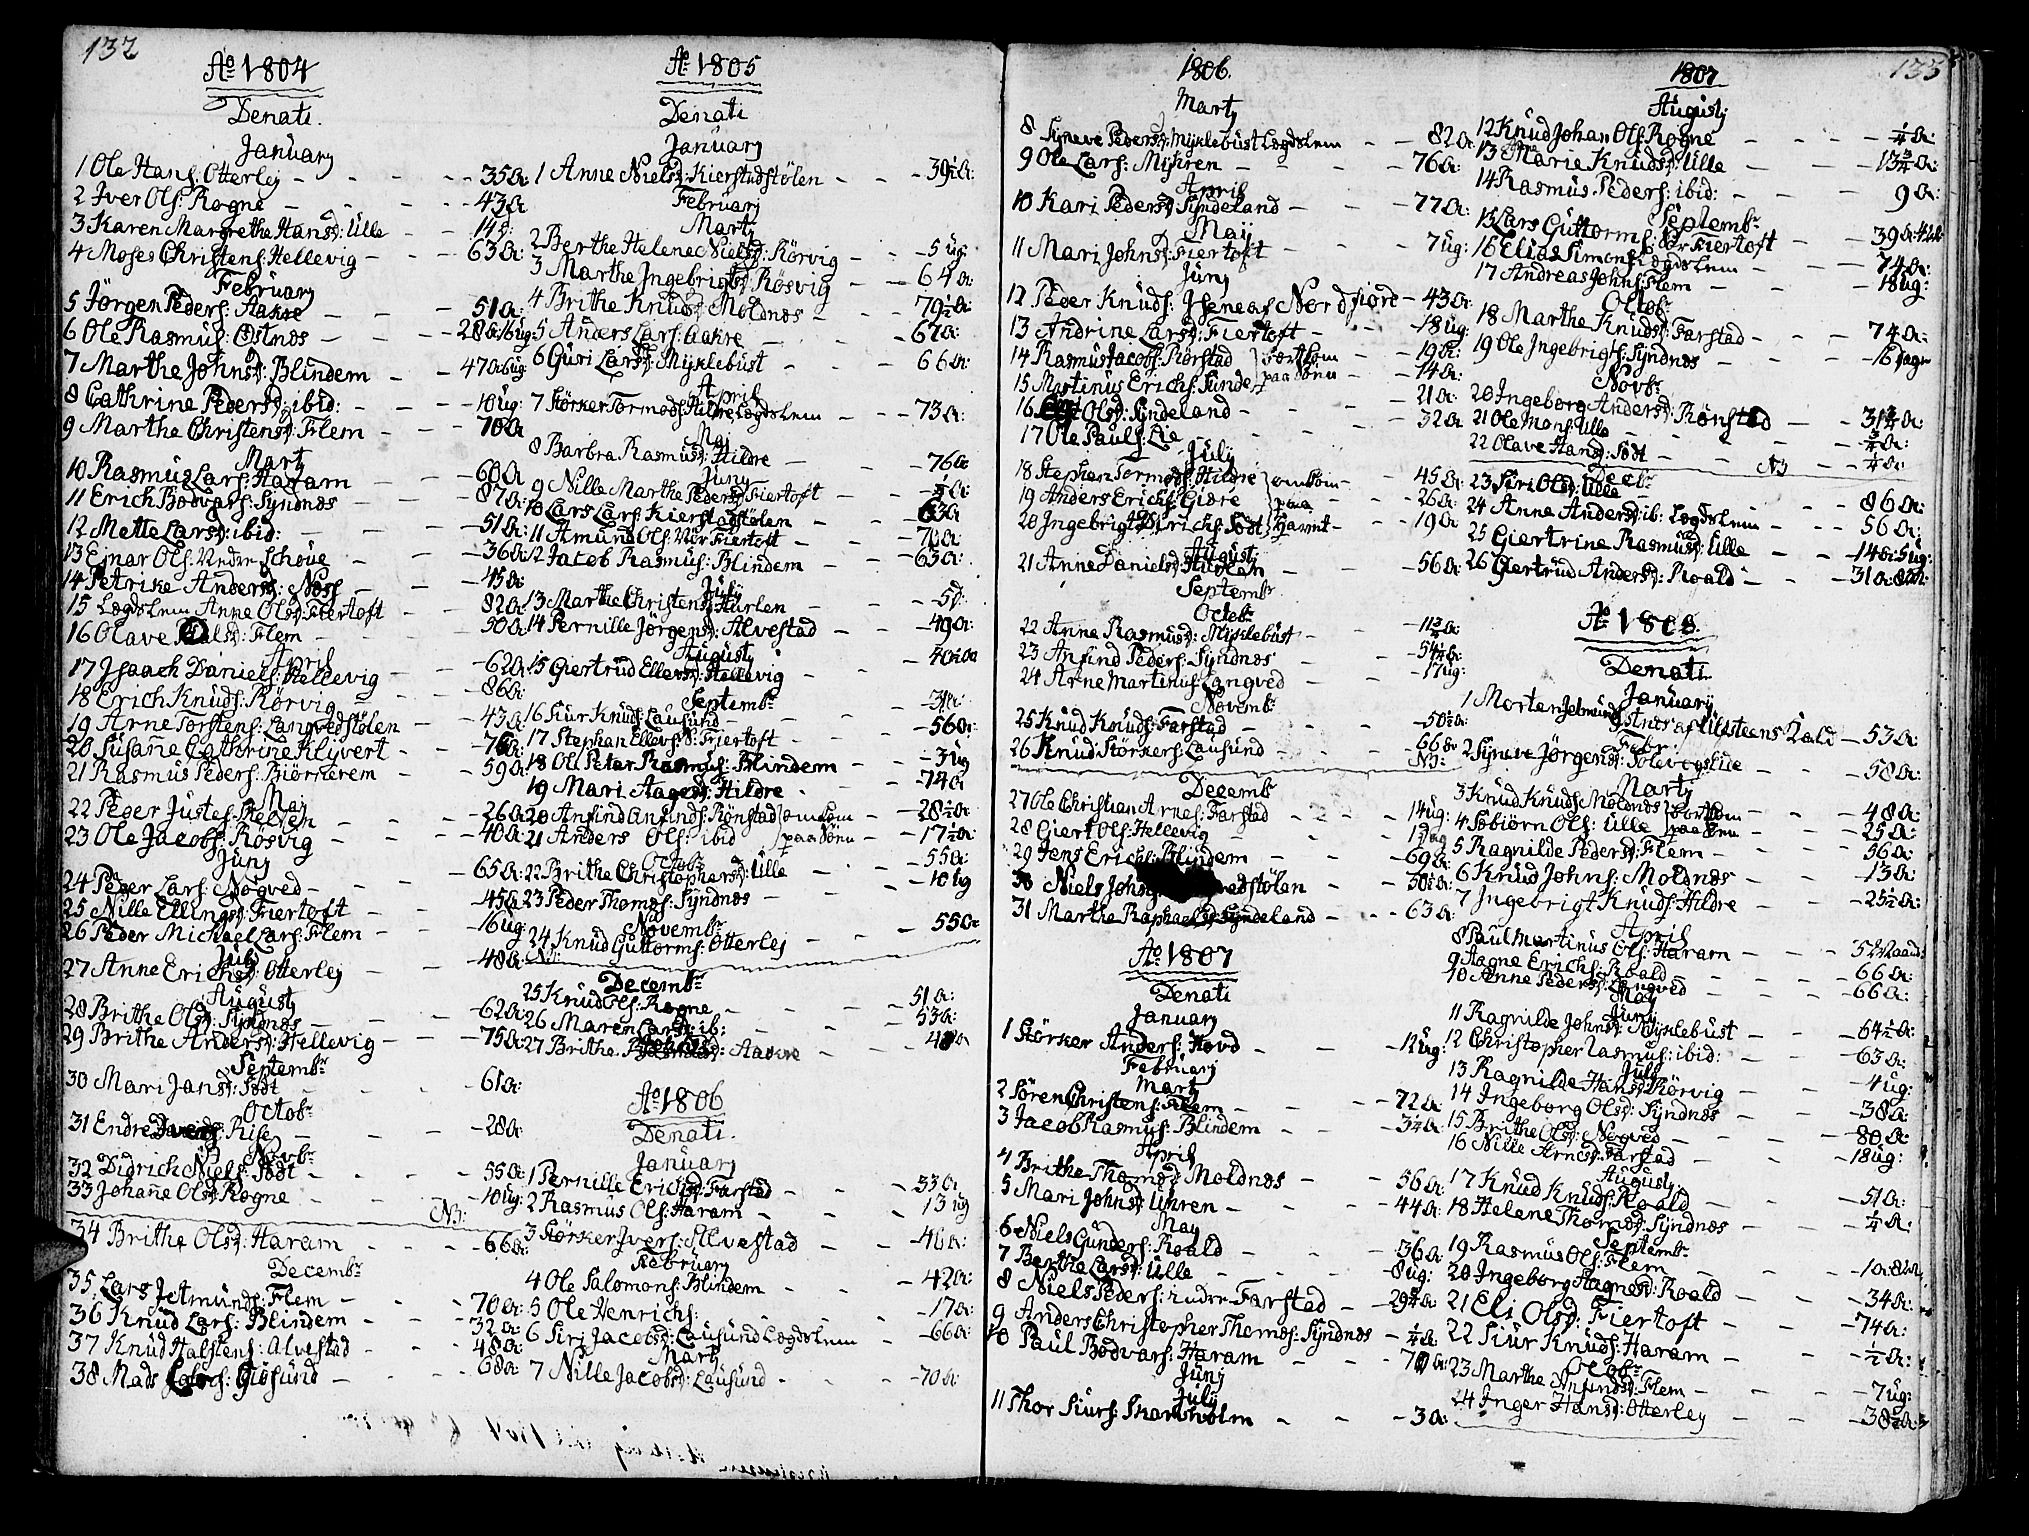 132
Ao 1804
Denati.
January
1 Ole Hans: Otterlej - 35 a:
2 Iver Ols: Rogne - 43 a
3 Karen Margrethe Hansd: Ulle - 14
4 Moses Christens: Hellevig - 63 a:
February
5 Jørgen Peders: Aakre - 51 a:
6 Ole Rasmus: Østnæs - 28 a: 16 ug:
7 Marthe Johnsd: Blindem - 47 a: 6 ug:
8 Cathrine Pedersd: ibid: - 10 ug:
9 Marthe Christensd: Flem - 70 a
Marty
10 Rasmus Lars: Haram - 60 a
11 Erich Bodvars: Syndnæs - 87 a:
12 Mette Larsd: ibid: - 51 a:
13 Ejnar Ols: Under Schoue - 36 a:
14 Petrike Andersd: Næss - 45 a
15 Lægdslem Anne Olsd: Fiertoft - 82 a:
16 Olave Palsd: Flem - 50 a:
April
17 Isaach Daniels: Hellevig - 62 a:
18 Erich Knuds: Rørvig - 86 a:
19 Arne Torstens: Langvedstølen - 43 a
20 Susane Cathrine Klyvert - 76 a:
21 Rasmus Peders: Biørkerem - 59 a:
Maj
22 Peder Justes: Relsen - 26 a:
23 Ole Jacobs: Røsvig - 40 a:
Juny
24 Peder Lars: Nogved - 65 a:
25 Nille Ellingsd: Fiertoft - 45 a
26 Peder Michael Lars: Flem - 16 ug:
July
27 Anne Erichsd: Otterlej - 48 a:
Augusty
28 Brithe Olsd: Syndnæs - 62 a:
29 Brithe Andersd: Hellevig - 75 a:
Septembr
30 Mari Jansd: Sødt - 61 a:
Octobr
31 Endre Rise - 28 a:
Novbr
32 Didrich Niels: Sødt - 55 a:
33 Johane Olsd: Rogne - 10 ug:
NB:
34 Brithe Olsd: Haram - 66 a:
Decembr
35 Lars Jetmunds: Flem - 70 a:
36 Knud Lars: Blindem - 32 a:
37 Knud Halstens: Alvestad - 48 a:
38 Mads Giøsund - 68 a:
Ao 1805
Denati
January
1 Anne Nielsd: Kierstadstølen - 39½ a:
February
Marty
2 Berthe Helene Nielsd: Rørvig - 5 ug:
3 Marthe Ingebrigtsd: Røsvig - 64 a
4 Brithe Knudsd: Moldnæs - 79½ a:
5 Anders Lars: Aakre - 67 a:
6 Guri Larsd: Myklebust - 66 a:
April
7 Størker Tormods: Hildre Lægdslem - 73 a:
Maj
8 Barbra Rasmusd: Hildre - 76 a:
Juny
9 Nille Marthe Pedersd: Fiertoft - ½ a:
10 Lars Lars: Kierstadstølen - 63 a
11 Amund Ols: Nør Fiertoft - 70 a
12 Jacob Rasmus: Blindem - 63 a:
July
13 Marthe Christensd: Hurlen - 5
14 Pernille Jørgensd: Alvestad - 49 a:
Augusty
15 Giertrud Ellersd: Hellevig - 40
Septembr
16 Siur Knuds: Lausund - 31 a:
17 Stephan Ellevs: S: Fiertoft - 56 a:
18 Oll Petar Rasmus: Blindem - 3 ug
19 Mari Aagesd: Hildre - 74 a
20 Anfind Anfinds: Rønstad } omkom - 28½ a:
21 Anders Ols: ibid } paa Sønu - 17½ a:
Octobr
22 Brithe Christophersd: Ulle - 55 a:
23 Peder Thomæs: Syndnæs - 10 ug
Novembr
24 Knud Guttorms: Otterlej - 55 a:
NB:
Decembr
25 Knud Ols: Rogne - 51 a:
26 Maren Larsd: ib: - 53 a:
27 Brithe Aakre - 48 a
Ao 1806
Denati.
January
1 Pernille Erichsd: Farstad - 33 a:
2 Rasmus Ols: Haram - 13 ug
3 Størker Ivers: Alvestad - 46 a:
February
4 Ole Salomons: Blindem - 42 a:
5 Ole Henrichs: - 17 a:
6 Siri Jacobsd: Lausund Lægdslem - 66 a:
Marty
7 Nille Jacobsd: Lausund - 70 a:
1806.
Marty
8 Syneve Pedersd: Myklebust Lægdslem - 82 a:
9 Ole Lars: Myhren - 76 a:
April
10 Kari Pedersd: Syndeland - 77 a:
May
11 Mari Johnsd: Fiertoft - 7 ug:
Juny
12 Peder Knuds: Isene af Nordfiore - 43 a:
13 Andrine Larsd: Fiertoft - 18 ug:
14 Rasmus Jacobs: Rørstad } bortkom - 19 a:
15 Martinus Erichs: Sunde } paa Sønu - 14 a:
16 Olsd: Syndeland - 21 a:
17 Ole Pauls: Lie - 32 a:
July
18 Stephan Tormods: Hildre } omkom - 45 a:
19 Anders Erichs: Gidre } paa - 26 a:
20 Ingebrigt Didrichs: Sødt } Havnt - 19 a
Augusty
21 Anne Danielsd: Hurlen - 56 a:
Septembr
Octobr
22 Anne Rasmusd: Myklebust - 11¾ a:
23 Anfind Peders: Syndnæs - 54½ a:
24 Arne Martinus: Langved - 17 ug:
Novembr
25 Knud Knuds: Farstad - 50½ a:
26 Knud Størkers: Lausund - 66 a:
NB:
Decembr
27 Ole Christian Arnes: Farstad - 14 ug:
28 Giert Ols: Hellevig - 12 ug
29 Jens Erichs: Blindem - 69 a:
30 Niels Johs vedstølen - 50½ a:
31 Marthe Raphaelsd: Syndeland - 63 a:
Ao 1807
Denati
January
1 Størker Anders: Hovd - 12 ug:
February
Marty
2 Søren Christens: Flem - 72 a
3 Jacob Rasmus: Blindem - 34 a:
April
4 Brithe Thomæsd: Moldnæs - 56 a:
5 Mari Johnsd: Uhren - 44 a:
May
6 Niels Gunders: Roald - 36 a:
7 Berthe Larsd: Ulle - 8 ug:
8 Niels Peders: under Farstad - 29¾ a:
9 Anders Christopher Thomæs: Syndnæs - ¼ a:
10 Paul Bodvars: Haram - 70 a:
Juny
July
11 Thor Siurs: Skarsholm - 3 a:
133
1807
Augusty
12 Knud Johan Ols: Rogne - ¼ a:
13 Marie Knudsd: Ulle - 13¾ a:
14 Rasmus Peders: ibid: - 9 a:
Septembr
15 Lars Guttorms: Sør Fiertoft - 39 a: 4
16 Elias Simons: Lægdslem - 74 a:
17 Andreas Johns: Flem - 18 ug:
Octobr
18 Marthe Knudsd: Farstad - 74 a:
19 Ole Ingebrigts: Syndnæs - 16 Dage
Novbr
20 Ingeborg Andersd: Rønstad - 31¾ a:
21 Ole Mons: Ulle - ¾ a:
22 Olave Hansd: Sødt - ¼ a:
NB
Decbr
23 Siri Olsd: Ulle - 86 a:
24 Anne Andersd: ib: Lægdslem - 56 a:
25 Giertrine Rasmusd: Ulle - 14 a: 5 ug:
26 Giertrud Andersd: Roald - 31 a: 8
Ao 1808.
Denati.
January
1 Morten Jetmund Anør af Uldsteens Kald - 53 a:
Febr:
2 Syneve Jørgensd: Solevogslie - 58 a:
Marty
3 Knud Knuds: Moldnæs } bortkom - 48 a:
4 Søbiørn Ols: Ulle } paa Sønu - 25 a:
5 Ragnilde Pedersd: Flem - 56 a:
6 Knud Johns: Moldnæs - 13 a:
7 Ingebrigt Knuds: Hildre - 25½ a:
April
8 Paul Martinus Ols: Haram - 5½ Maand:
9 Aagne Erichs: Roald - 66 a:
10 Anne Pedersd: Langved - 66 a:
May
Juny
11 Ragnilde Johnsd: Myklebust - 64½ a:
12 Christopher Rasmus: ibid: - 63 a:
July
13 Ragnilde Hansd: Rørvig - 4 ug:
14 Ingeborg Olsd: Syndnæs - 38 a:
15 Brithe Olsd: Nogved - 80 a:
16 Nille Arnesd: Farstad - 18 ug:
Augusty
17 Knud Knuds: Roald - 51 a:
18 Helene Thomæsd: Syndnæs - ¼ a:
Septembr
19 Rasmus Ols: Flem - 1 a: 8
20 Ingeborg Aagnesd: Roald - 34 a:
21 Eli Olsd: Fiertoft - 74 a:
22 Siur Knuds: Haram - ½ a:
Octobr
23 Marthe Anfindsd: Flem - 7 ug:
24 Inger Hansd: Otterlej - 38½ a: